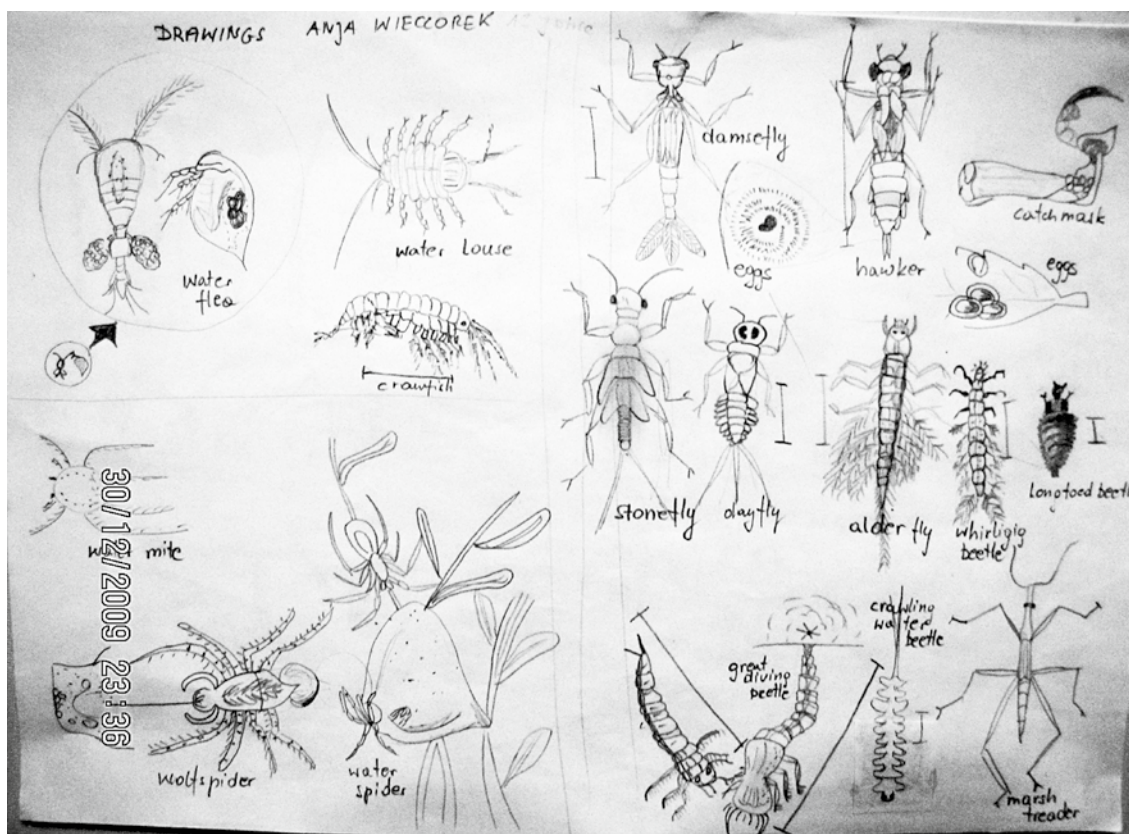 DRAWINGS ANJA WIECCOREK
damsefly
catch mask
water louse
water
flea
eggs
hawker
eggs
crawfish
stonefly
dayfly
alder fly
whirligig
beetle
longtoed beetle
mite
30/12/2009 23:36
wolfspider
water
spider
great
diving
beetle
crawling
water
beetle
marsh
treader